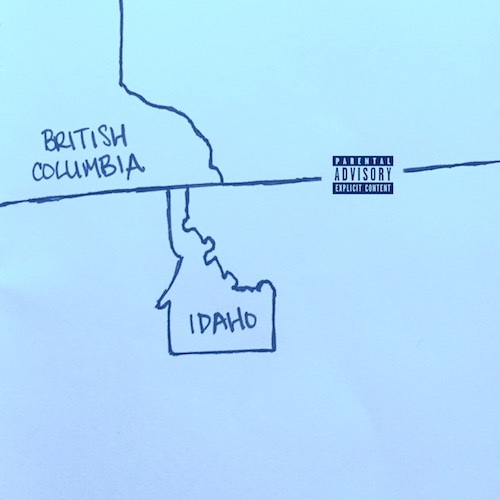 BRITISH
COLUMBIA
PARENTAL
ADVISORY
EXPLICIT CONTENT
IDAHO